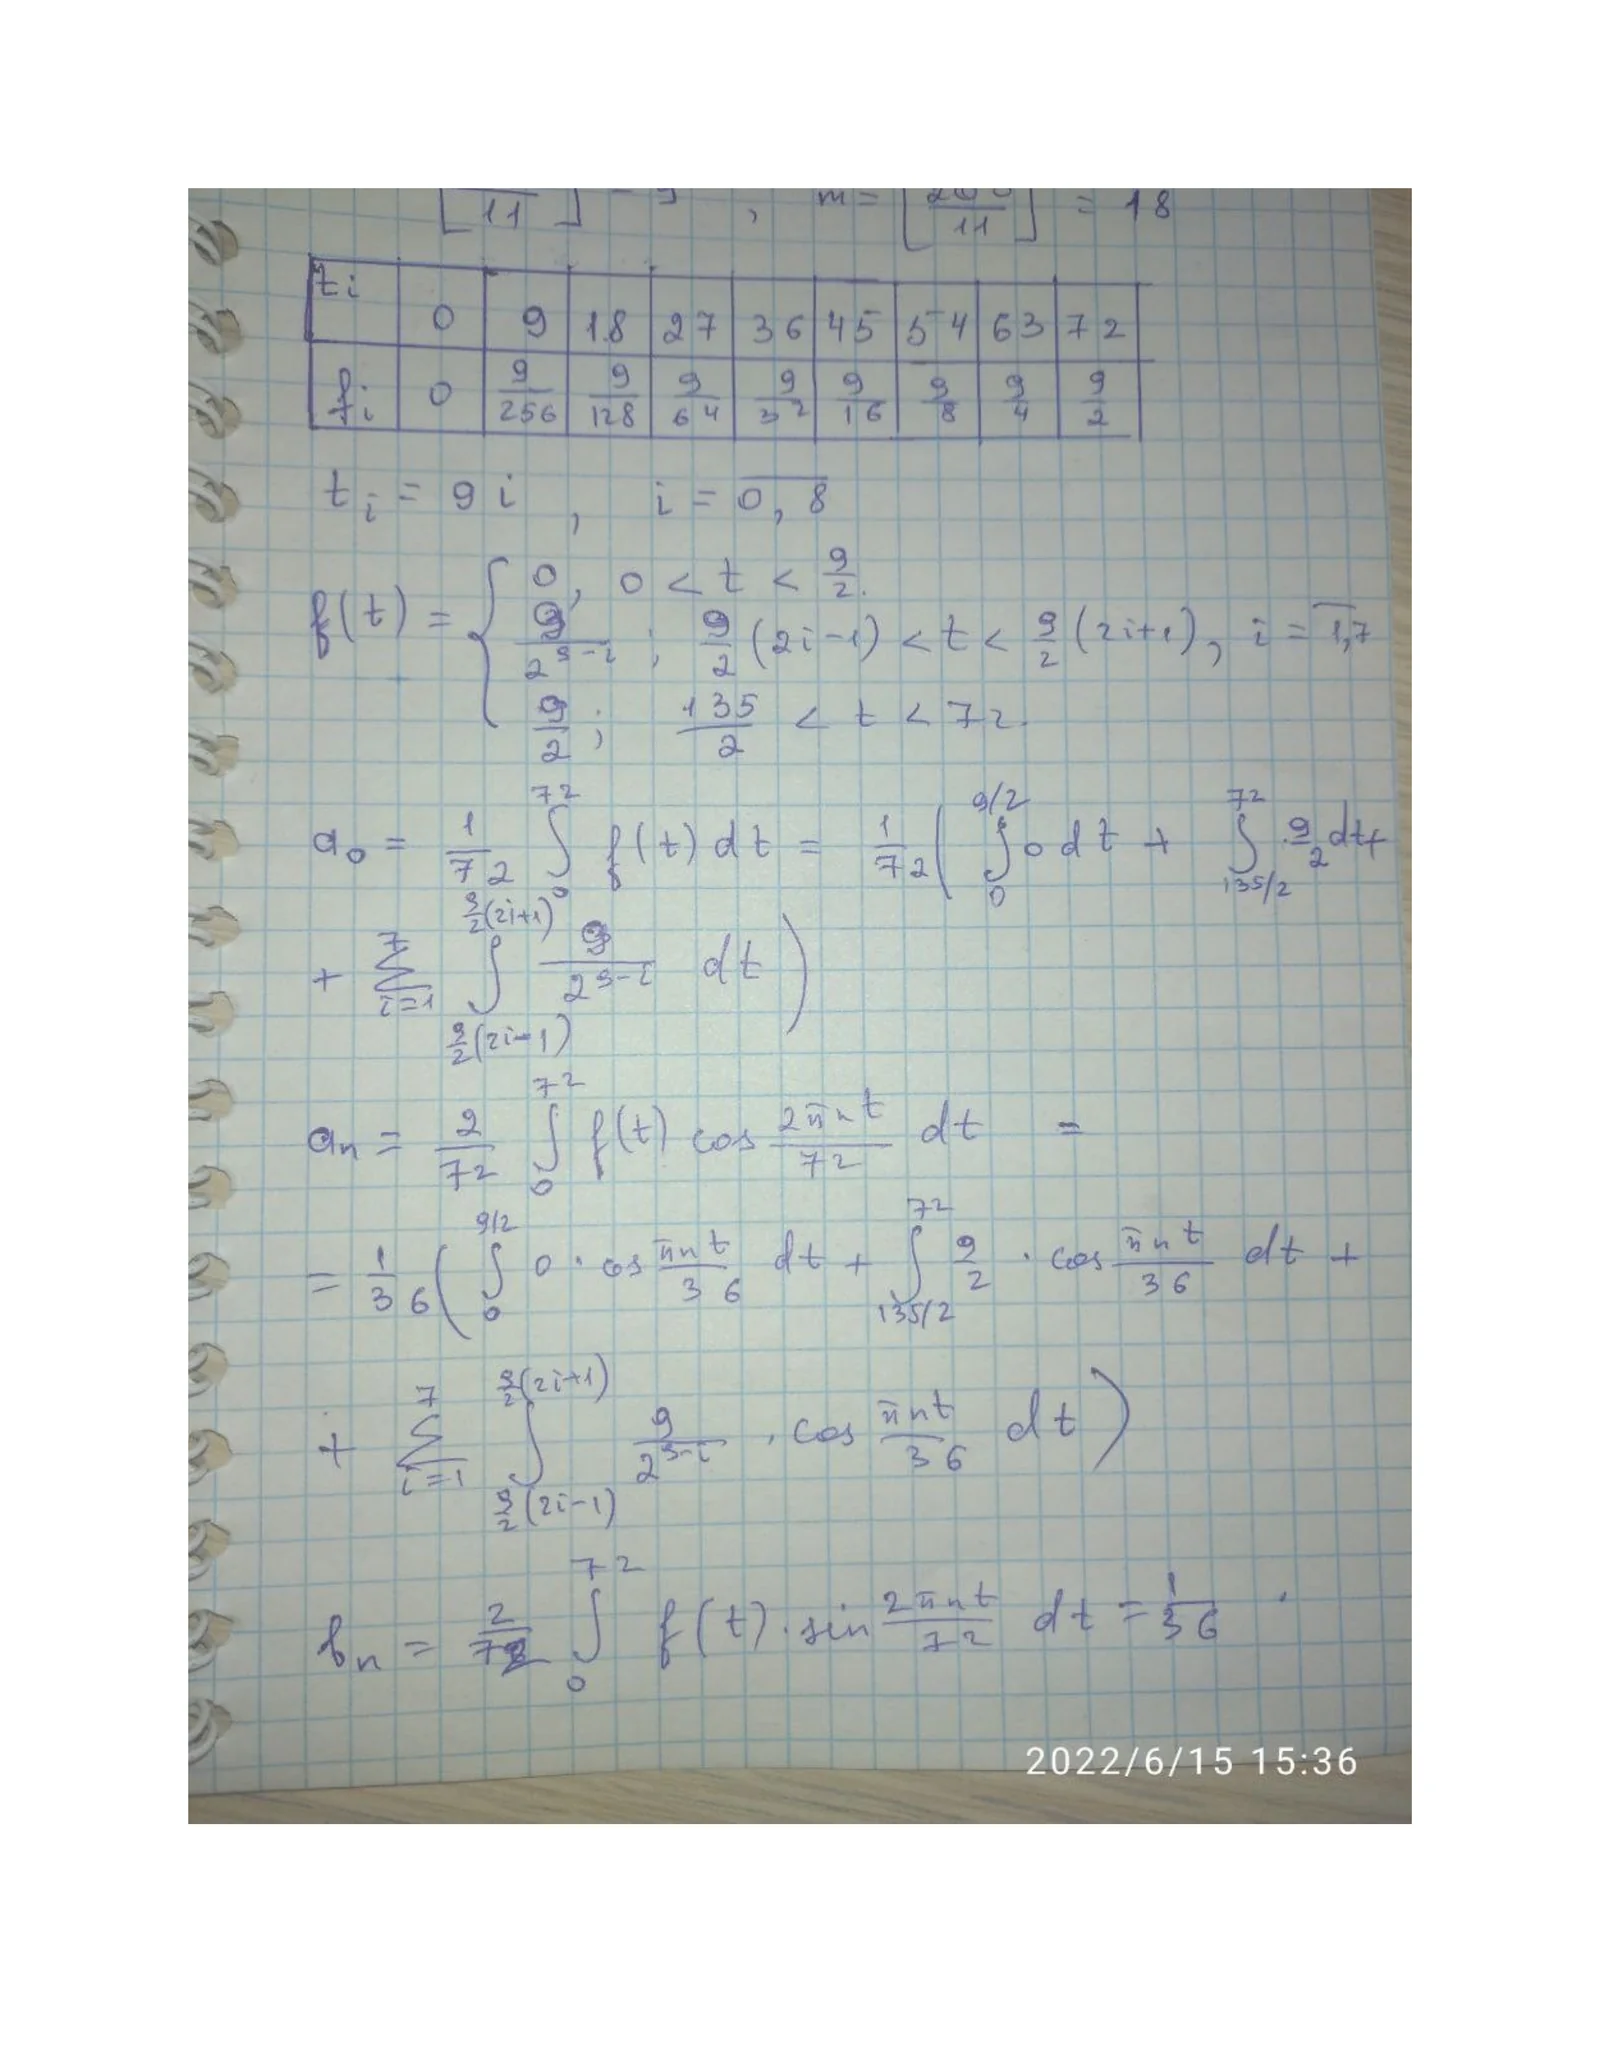 [ /11 ] = 9 , m = [ 200/11 ] = 18
ti 0 9 18 27 36 45 54 63 72
fi 0 9/256 9/128 9/64 9/32 9/16 9/8 9/4 9/2
t_i = 9i , i = \overline{0, 8}
f(t) = { 0, 0 < t < 9/2.
9/2^{9-i} ; 9/2 (2i-1) < t < 9/2 (2i+1), i = \overline{1,7}
9/2 ; 135/2 < t < 72.
a_0 = 1/72 ∫_0^{72} f(t) dt = 1/72 ( ∫_0^{9/2} 0 dt + ∫_{135/2}^{72} 9/2 dt +
+ ∑_{i=1}^{7} ∫_{9/2(2i-1)}^{9/2(2i+1)} 9/2^{9-i} dt )
a_n = 2/72 ∫_0^{72} f(t) cos 2πnt/72 dt =
= 1/36 ( ∫_0^{9/2} 0 · cos πnt/36 dt + ∫_{135/2}^{72} 9/2 · cos πnt/36 dt +
+ ∑_{i=1}^{7} ∫_{9/2(2i-1)}^{9/2(2i+1)} 9/2^{9-i} · cos πnt/36 dt )
b_n = 2/72 ∫_0^{72} f(t) · sin 2πnt/72 dt = 1/36 ·
2022/6/15 15:36